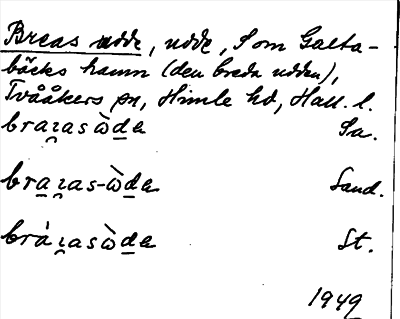 Breas udde, udde, S om Galta-
bäcks hamn (den breda udden),
Tvååkers sn, Himle hd, Hall. l.
braɿ̯asὼdɐ Sa.
braɿ̯as-ὼdɐ Sand.
bráɿ̯asὼdɐ St.
1949